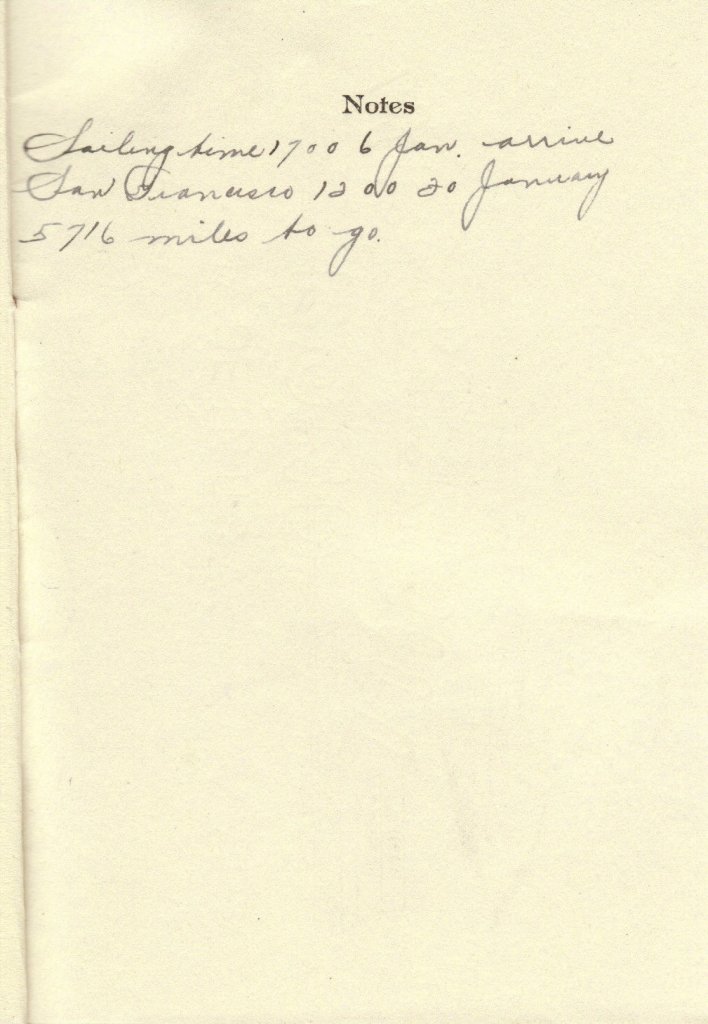 Notes
Sailing time 1700 6 Jan. arrive
San Francisco 1200 20 January
5716 miles to go.